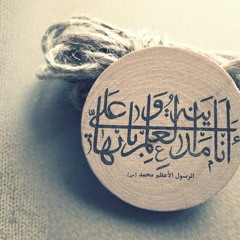 أنا مدينة العلم وعلي بابها
الرسول الأعظم محمد (ص)